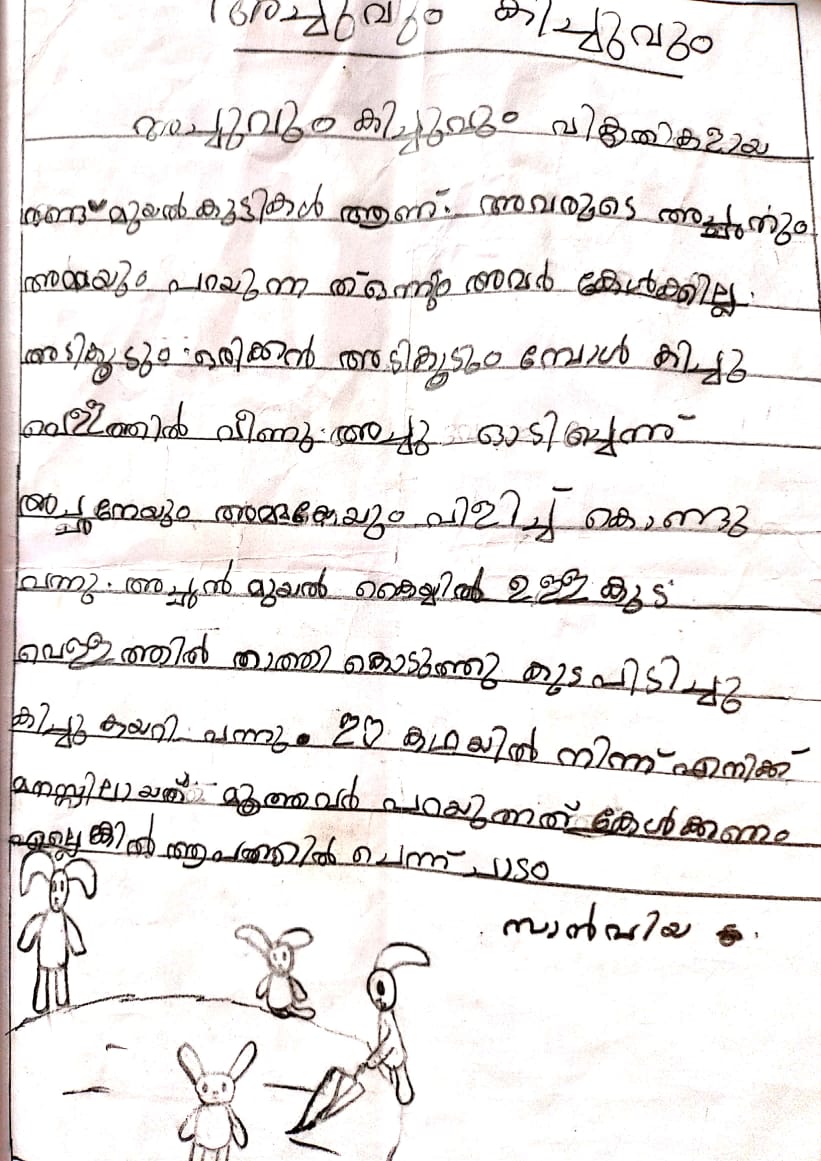 അപ്പുവും കിച്ചുവും
അപ്പുവും കിച്ചുവും വികൃതികളായ
രണ്ട് മുയൽ കുട്ടികൾ ആണ്. അവരുടെ അച്ഛനും
അമ്മയും പറയുന്ന ത് ഒന്നും അവർ കേൾക്കില്ല.
അടികൂടും. ഒരിക്കൽ അടികൂടും മ്പോൾ കിച്ചു
വെള്ളത്തിൽ വീണു. അപ്പു ഓടി ച്ചെന്ന്
അച്ഛനേയും അമ്മയേയും വിളിച്ച് കൊണ്ടു
വന്നു. അച്ഛൻ മുയൽ കൈയ്യിൽ ഉള്ള കുട
വെള്ളത്തിൽ താത്തി കൊടുത്തു കുട പിടിച്ചു
കിച്ചു കയറി വന്നു. ഈ കഥയിൽ നിന്ന് എനിക്ക്
മനസ്സിലായത് മൂത്തവർ പറയുന്നത് കേൾക്കണം
എല്ലെങ്കിൽ ആപത്തിൽ ചെന്ന് ചാടം
സാൻവിയ കെ.